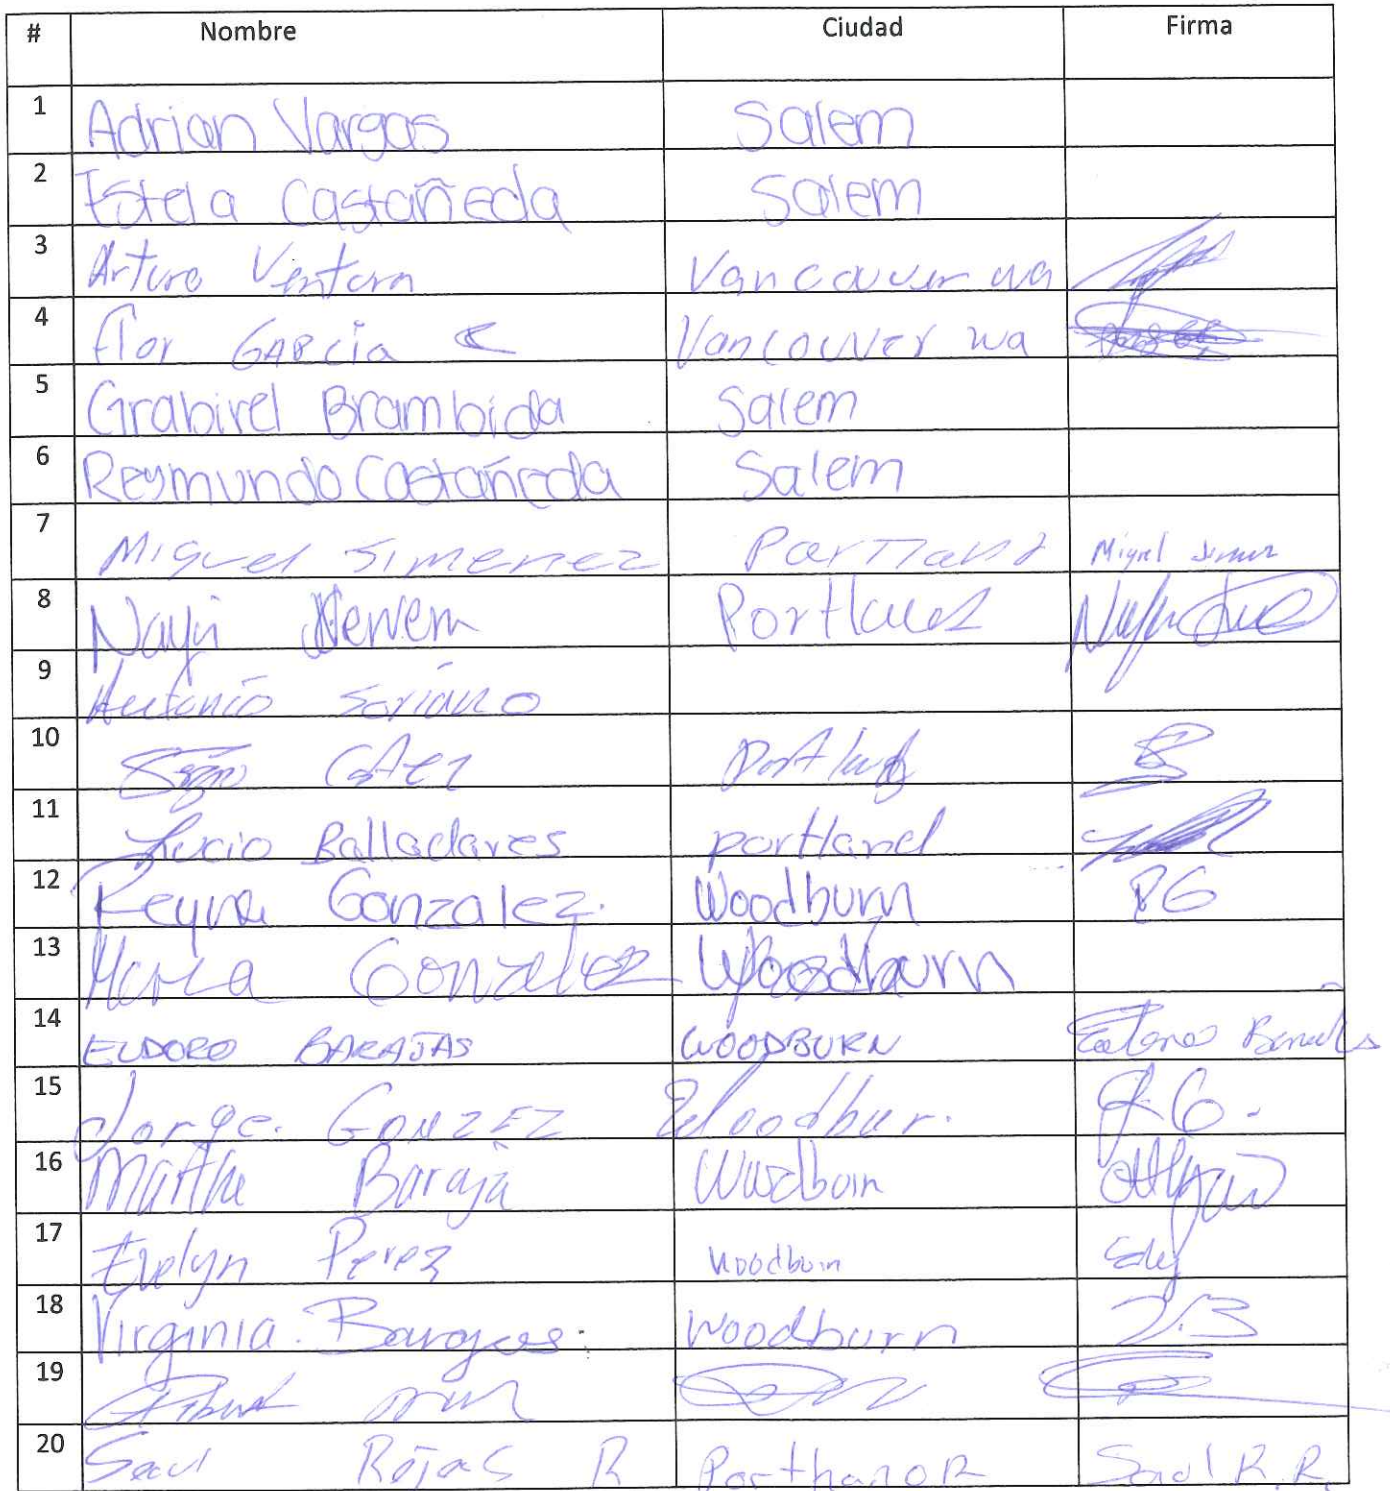 # Nombre Ciudad Firma
1 Adrian Vargas Salem
2 Estela Castañeda Salem
3 Arturo Ventura Vancouver wa
4 flor GARCia Vancouver wa
5 Grabirel Brambida Salem
6 Reymundo Castañeda Salem
7 Miguel Simenez Miguel
8 Nayii Portland
9 Antonio Soriano
10 Portland
11 Lucio Balladares portland
12 Reyna Gonzalez. Woodburn RG
13 Maria Gonzalez Woodburn
14 EUDORO BARAJAS WOODBURN
15 Jorge. GONZEZ Woodbur. J.G.
16 Martha Baraja
17 Evelyn Perez Woodburn
18 Virginia Woodburn
19
20 Saul Rojas R Saul R.R.